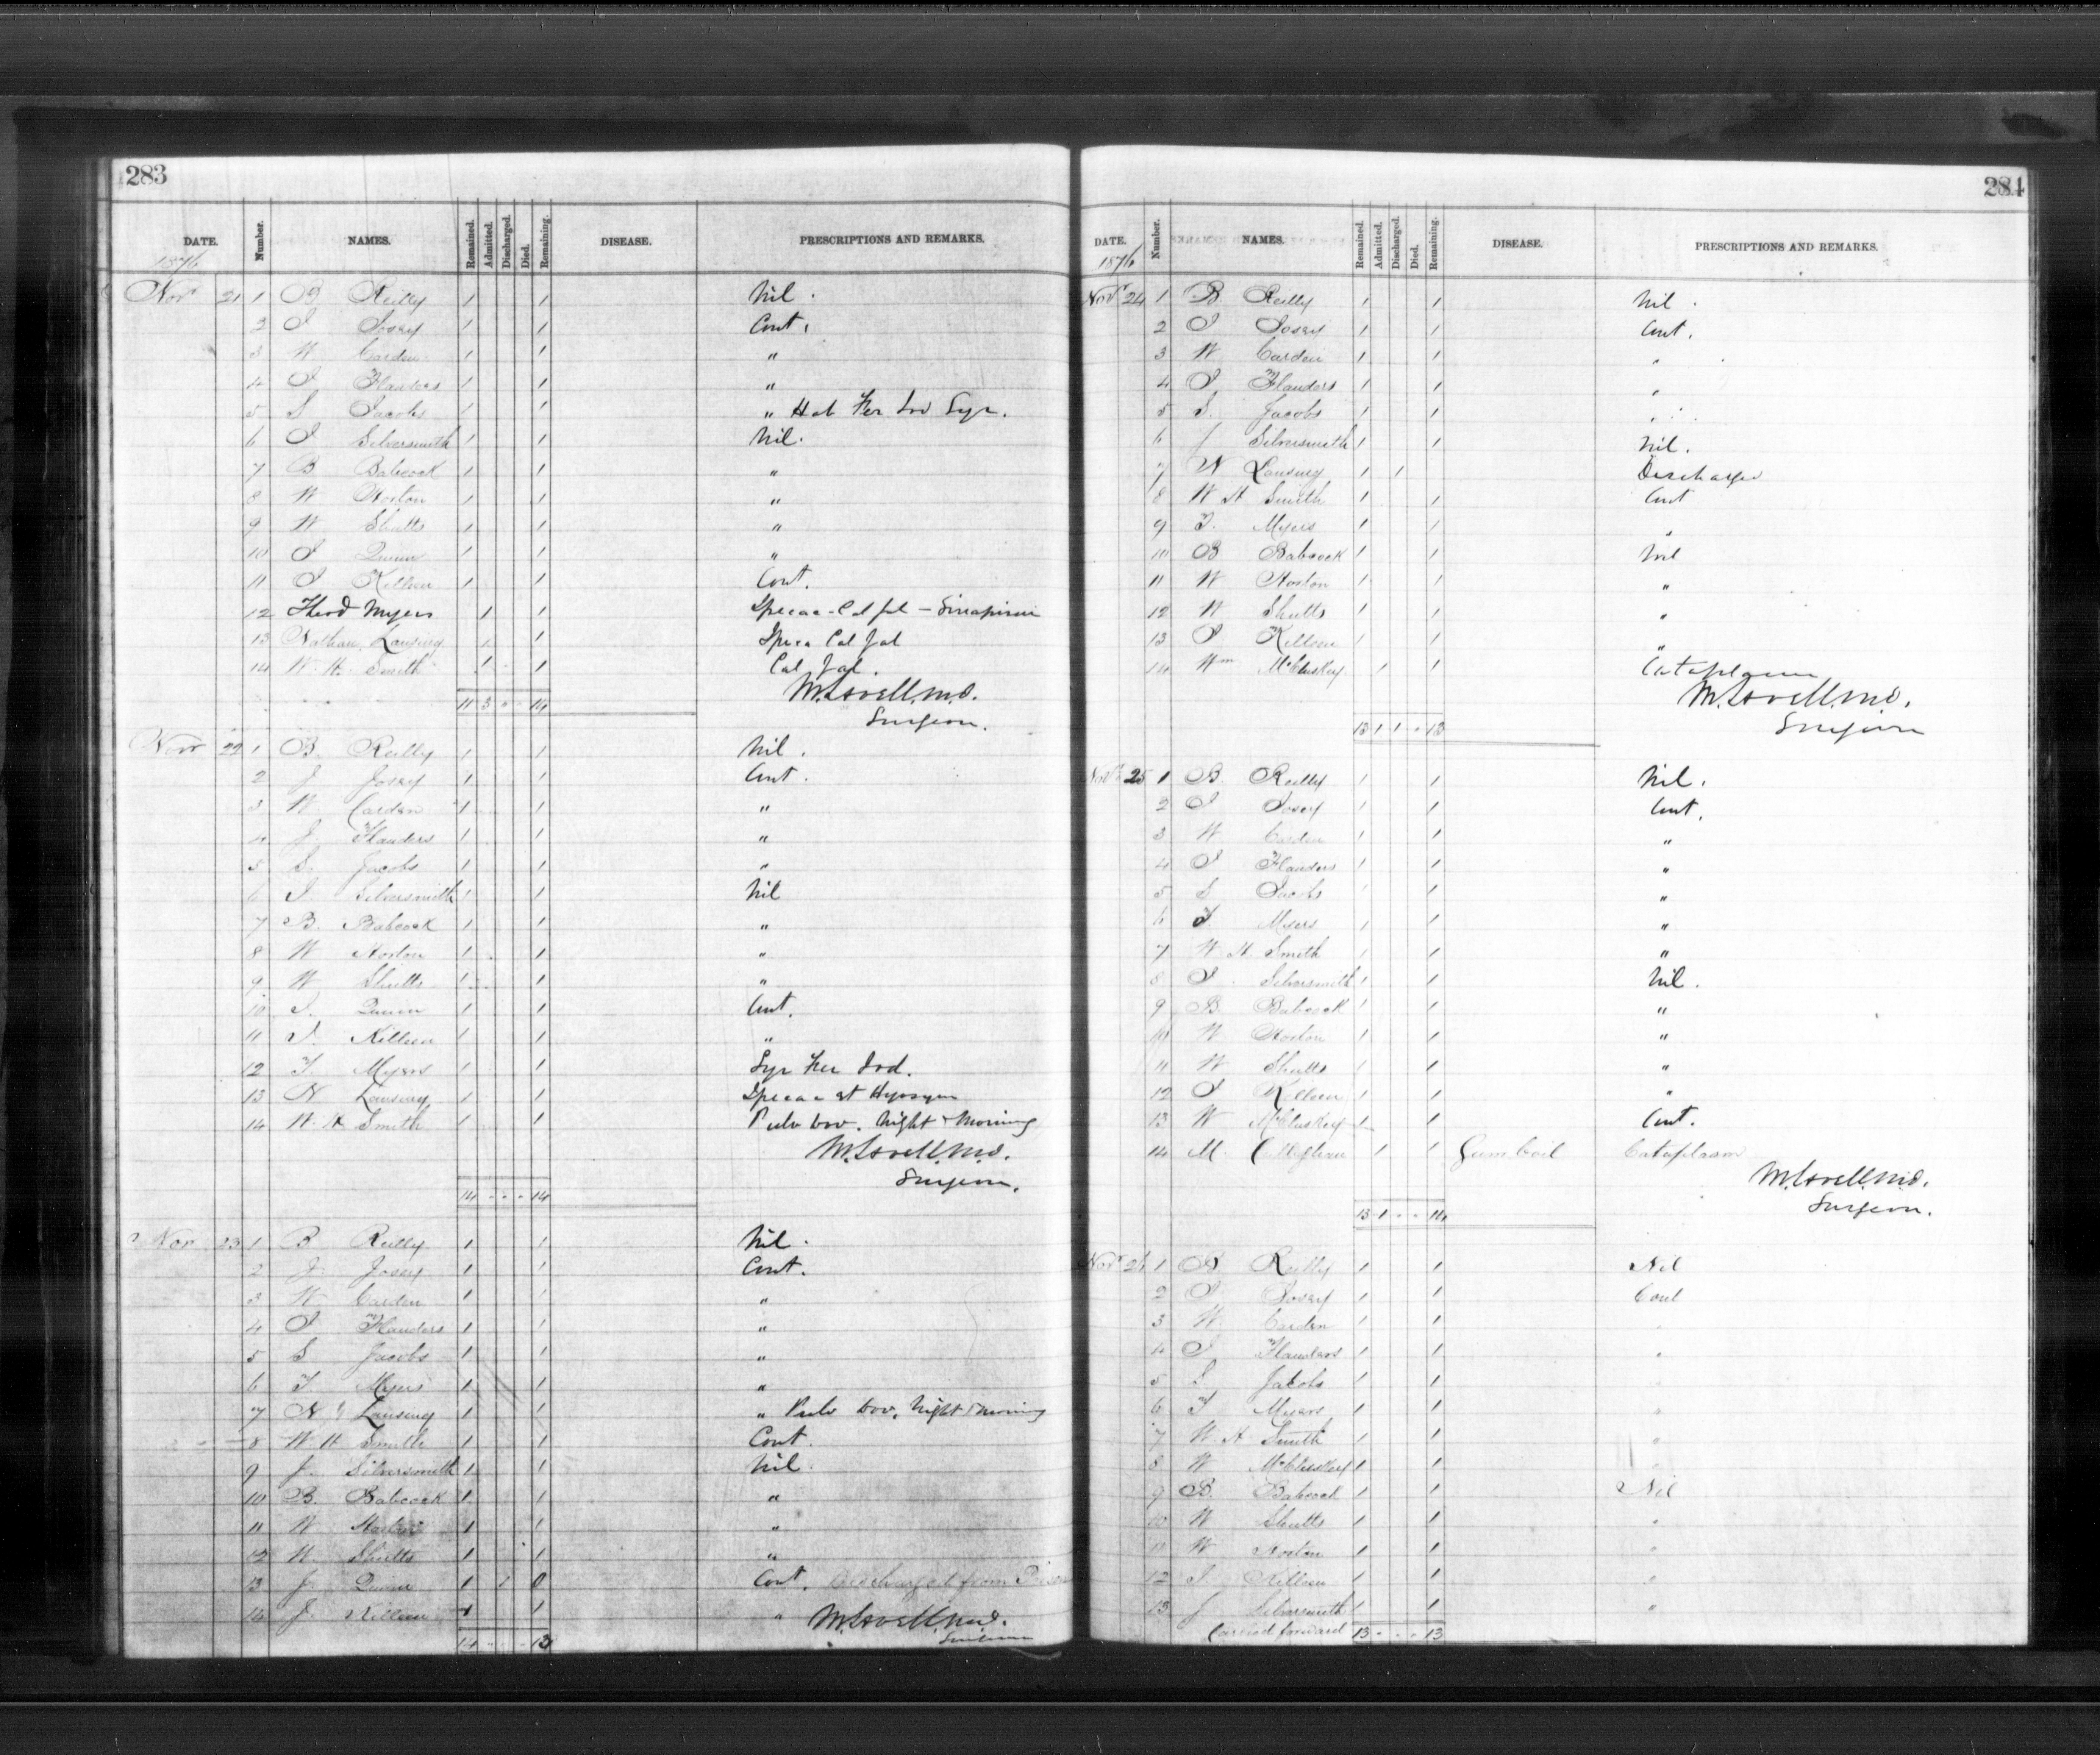 283
DATE. Number. NAMES. Remained. Admitted. Discharged. Died. Remaining. DISEASE. PRESCRIPTIONS AND REMARKS.
1876
Novr 21 1 B Reilly 1 1 Nil.
2 J Josey 1 1 Cont.
3 W Carden 1 1 "
4 J Flanders 1 1 "
5 S Jacobs 1 1 " Hab Fer Iod Syr.
6 J Silversmith 1 1 Nil.
7 B Babcock 1 1 "
8 W Norton 1 1 "
9 W Shutts 1 1 "
10 J Quinn 1 1 "
11 J Killeen 1 1 Cont.
12 Theod Myers 1 1 Ipecac - Cal Jal -
13 Nathan Lansing 1 1 Cal Jal
14 W. H. Smith 1 1 Cal Jal.
M. Lavell. M.D.
Surgeon.
11 3 " - 14
Novr 22 1 B. Reilly 1 1 Nil.
2 J Josey 1 1 Cont.
3 W. Carden 1 1 "
4 J. Flanders 1 1 "
5 S. Jacobs 1 1 "
6 J. Silversmith 1 1 Nil
7 B. Babcock 1 1 "
8 W Norton 1 1 "
9 W Shutts 1 1 "
10 J. Quinn 1 1 Cont.
11 J. Killeen 1 1 "
12 T. Myers 1 1 Syr Fer Iod.
13 N Lansing 1 1 Ipecac et Hyosym
14 W. H Smith 1 1 Pulv Dov. Night & Morning
M. Lavell. M.D.
Surgeon.
14 - - - 14
Nov 23 1 B Reilly 1 1 Nil.
2 J Josey 1 1 Cont.
3 W Carden 1 1 "
4 J Flanders 1 1 "
5 S Jacobs 1 1 "
6 T. Myers 1 1 "
7 N Lansing 1 1 " Pulv Dov, Night & Morning
8 W. H Smith 1 1 Cont.
9 J. Silversmith 1 1 Nil.
10 B. Babcock 1 1 "
11 W Norton 1 1 "
12 W. Shutts 1 1 "
13 J. Quinn 1 1 0 Cont. Discharged from
14 J. Killeen 1 1 "
M. Lavell. M.D.
Surgeon
14 - - - 13
284
DATE. Number. NAMES. Remained. Admitted. Discharged. Died. Remaining. DISEASE. PRESCRIPTIONS AND REMARKS.
1876
Novr 24 1 B Reilly 1 1 Nil.
2 J Josey 1 1 Cont.
3 W Carden 1 1 "
4 J Flanders 1 1 "
5 S. Jacobs 1 1 "
6 J Silversmith 1 1 Nil.
7 N Lansing 1 1 Discharged
8 W H Smith 1 1 Cont
9 T. Myers 1 1 "
10 B Babcock 1 1 Nil
11 W Norton 1 1 "
12 W Shutts 1 1 "
13 J Killeen 1 1 "
14 Wm McCluskey 1 1 Cataplasm
M. Lavell. M.D.
Surgeon
13 1 1 - 13
Novr 25 1 B Reilly 1 1 Nil.
2 J Josey 1 1 Cont.
3 W Carden 1 1 "
4 J Flanders 1 1 "
5 S Jacobs 1 1 "
6 T Myers 1 1 "
7 W. H Smith 1 1 "
8 J. Silversmith 1 1 Nil.
9 B. Babcock 1 1 "
10 W Norton 1 1 "
11 W Shutts 1 1 "
12 J Killeen 1 1 "
13 W McCluskey 1 1 Cont.
14 M. 1 1 Gumboil Cataplasm
M. Lavell. M.D.
Surgeon.
13 1 - - 14
Novr 26 1 B. Reilly 1 1 Nil
2 J Josey 1 1 Cont
3 W. Carden 1 1 "
4 J Flanders 1 1 "
5 S. Jacobs 1 1
6 T Myers 1 1 "
7 W. H Smith 1 1 "
8 W McCluskey 1 1 "
9 B. Babcock 1 1 Nil
10 W Shutts 1 1 "
11 W Norton 1 1 "
12 J. Killeen 1 1 "
13 J Silversmith 1 1 "
Carried forward 13 - - - 13